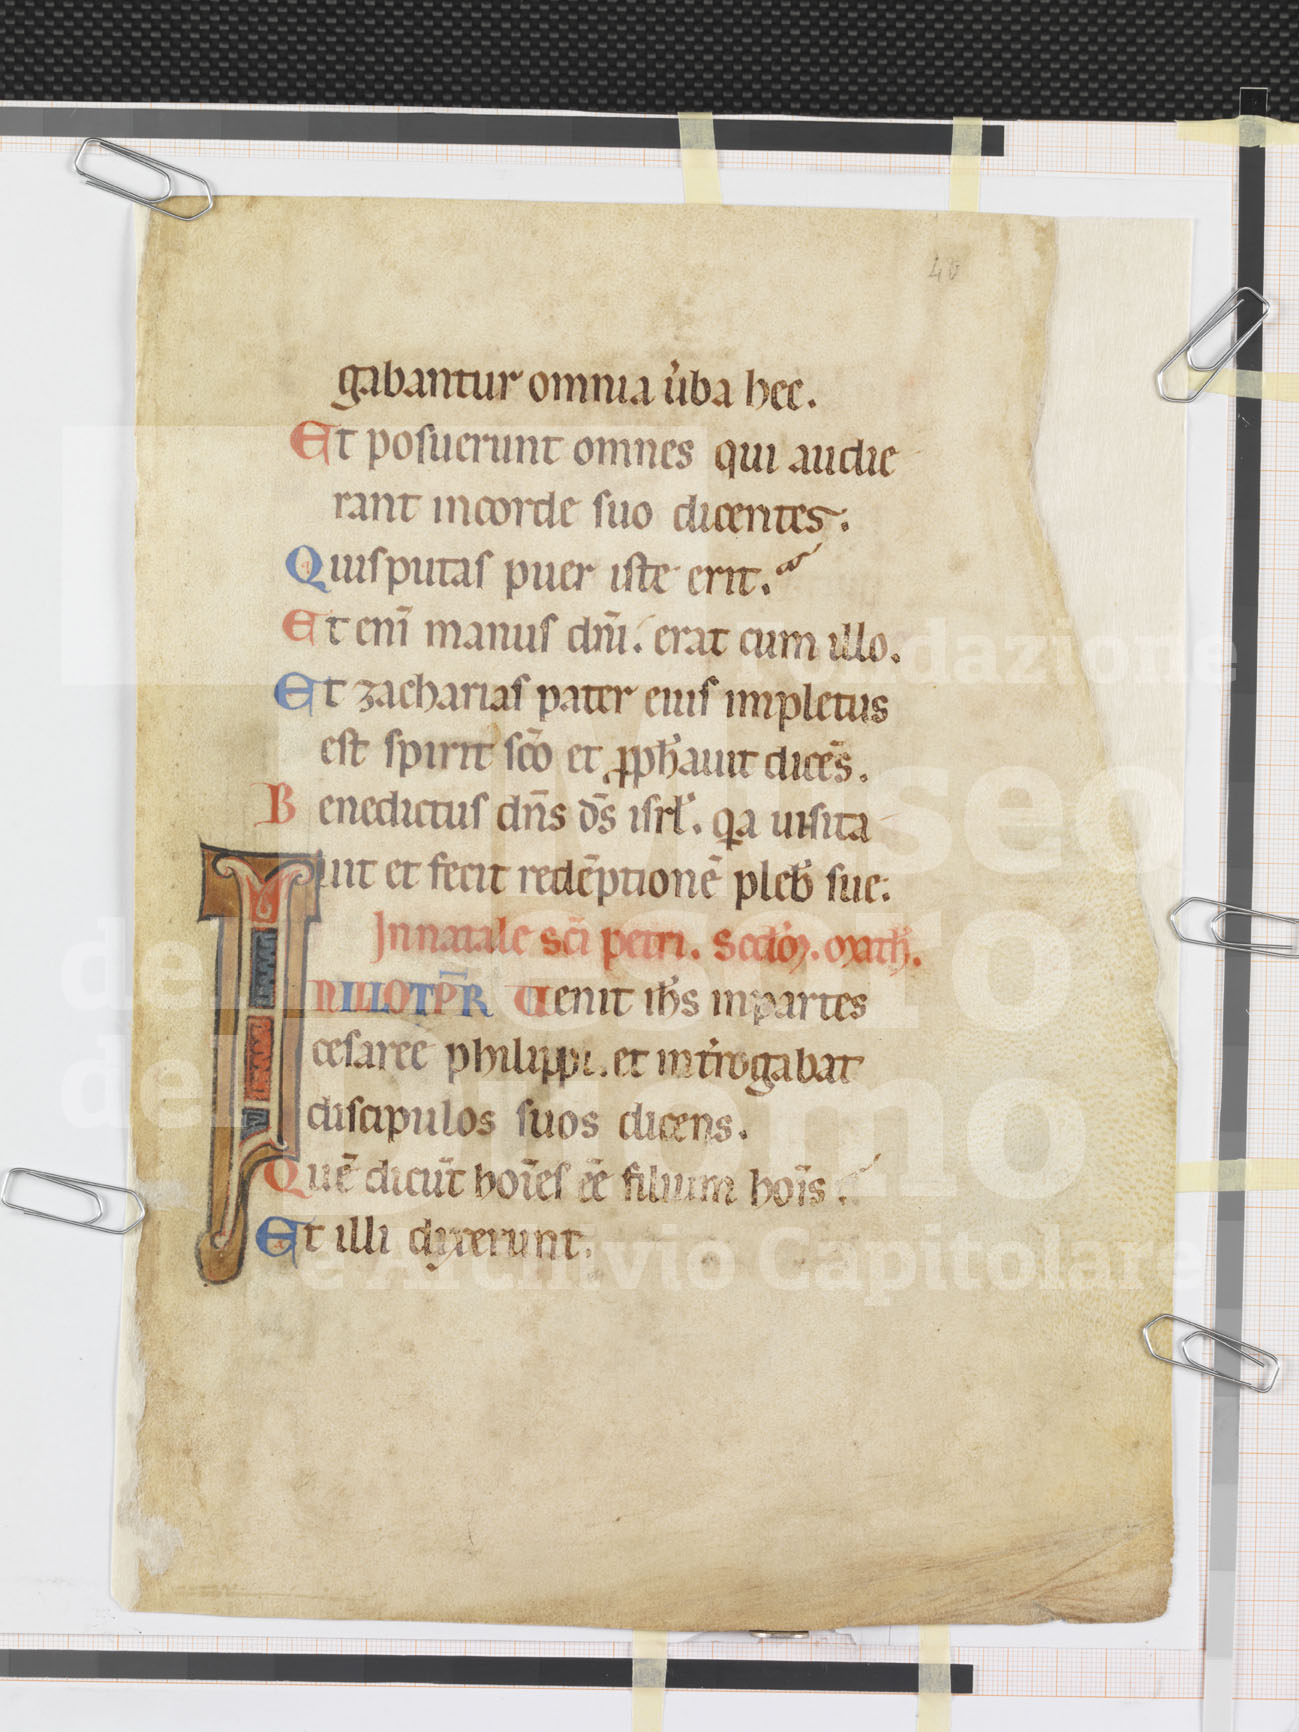 40
gabantur omnia ũba hec.
Et posuerunt omnes qui audie
rant incorde suo dicentes.
Quisputas puer iste erit.
Et eni̅ manus dn̅i. erat cum illo.
Et zacharias pater eius impletus
est spirit sc̅o et ꝓph̅auit dice̅s.
Benedictus dn̅s ds̅ isrl̅. qa uisita
uit et fecit rede̅ptione̅ pleb̅ sue.
Innatale sc̅i petri. Secd̅ȝ. math̅.
INILLOTP̅R Uenit ih̅s inpartes
cesaree philippi. et int̅rogabat
discipulos suos dicens.
Que̅ dicu̅t hoi̅es e̅e̅ filium hoi̅s.
Et illi dixerunt.
Fondazione
Museo
della Tesoro
del Duomo
e Archivio Capitolare